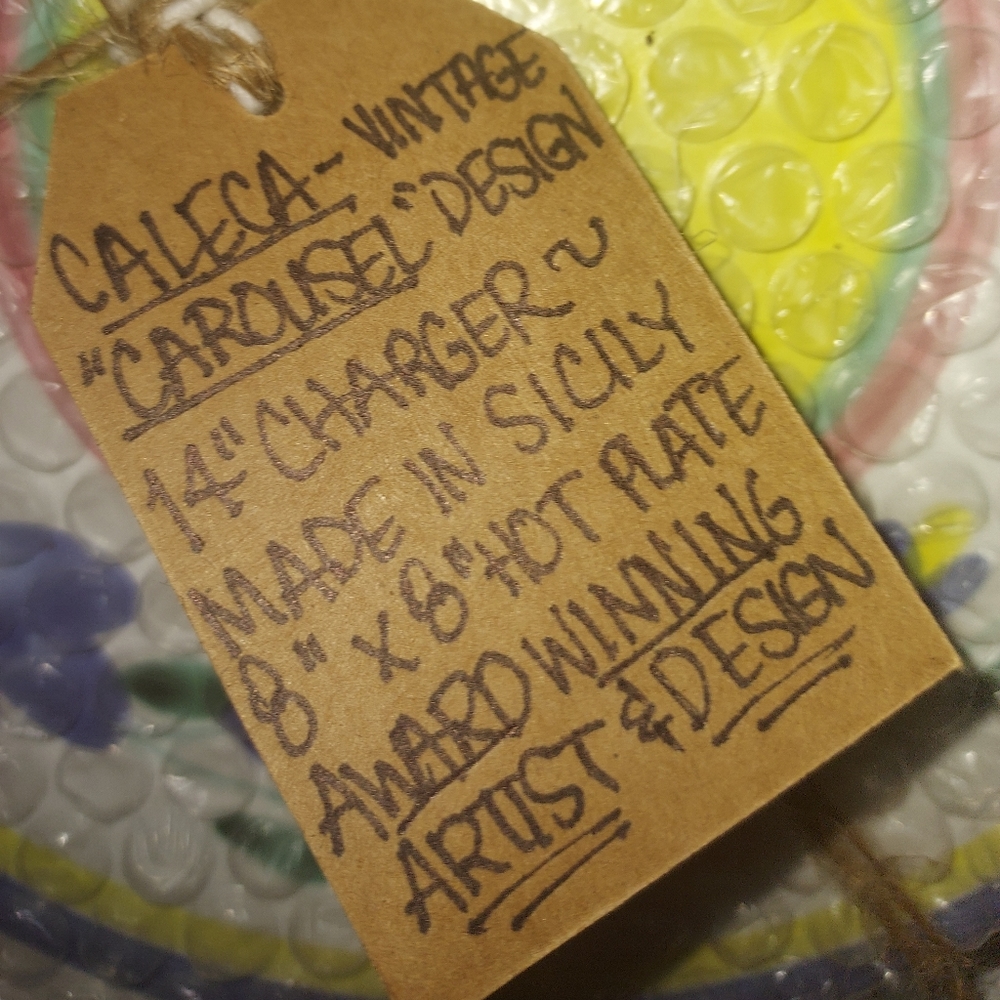 CALECA- VINTAGE
"CAROUSEL" DESIGN
14" CHARGER ~
MADE IN SICILY
8" X 8" HOT PLATE
AWARD WINNING
ARTIST & DESIGN